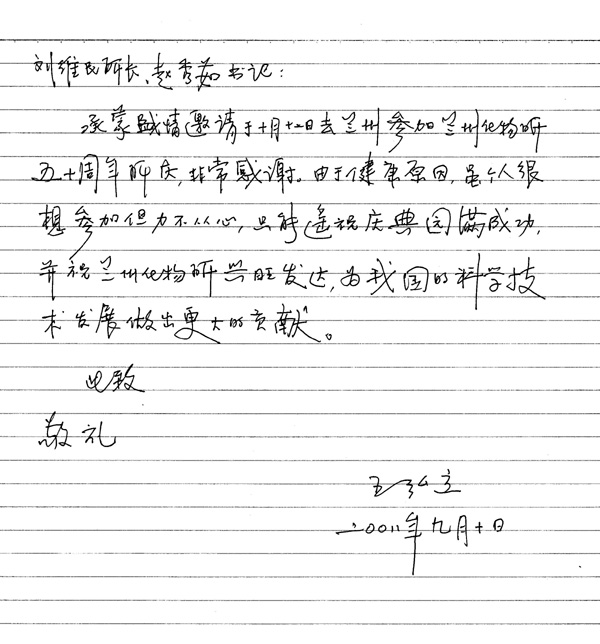 刘维民所长、赵秀茹书记：
承蒙盛情邀请于十月十二日去兰州参加兰州化物所
五十周年所庆，非常感谢。由于健康原因，虽个人很
想参加但力不从心，只能遥祝庆典圆满成功，
并祝兰州化物所兴旺发达，为我国的科学技
术发展做出更大的贡献。
此致
敬礼
王弘立
二00八年九月十日